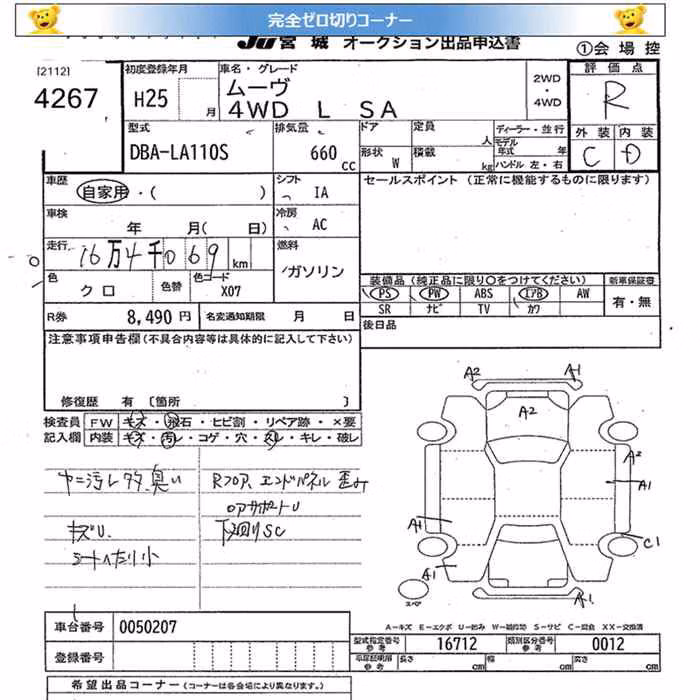 完全ゼロ切りコーナー
JU宮城 オークション出品申込書
①会場控
[2112]
4267
初度登録年月
H25 月
車名・グレード
ムーヴ
4WD L SA
2WD
・
4WD
評価点
R
外装 内装
C D
型式
DBA-LA110S
排気量
660 CC
ドア 定員 人
形状 W 積載 kg
ディーラー・並行
モデル年式 年
ハンドル 左・右
車歴
自家用・( )
シフト
IA
セールスポイント (正常に機能するものに限ります)
車検
年 月( 日)
冷房
AC
走行
16万4千069 km
燃料
ガソリン
色
クロ
色替
色コード
X07
装備品 (純正品に限り○をつけてください)
新車保証書
PS PW ABS エアB AW
SR ナビ TV カワ
有・無
R券 8,490 円
名変通知期限 月 日
後日品
注意事項申告欄(不具合内容等は具体的に記入して下さい)
修復歴 有 〔箇所 〕
検査員
記入欄
FW キズ・飛石・ヒビ割・リペア跡・×要
内装 キズ・汚レ・コゲ・穴・スレ・キレ・破レ
ヤニ汚レ多、臭い
キズU.
シートへたり小
Rフロア、エンドパネル歪み
下廻りSC
A2 A1
A2
A2
A1
A1
C1
A1
A1
スペア
A-キズ E-エクボ U-凹み W-補修跡 S-サビ C-腐食 XX-交換済
車台番号 0050207
登録番号
型式指定番号 16712
類別区分番号 0012
長さ cm 幅 cm 高さ cm
希望出品コーナー (コーナーは各会場により異なります。)